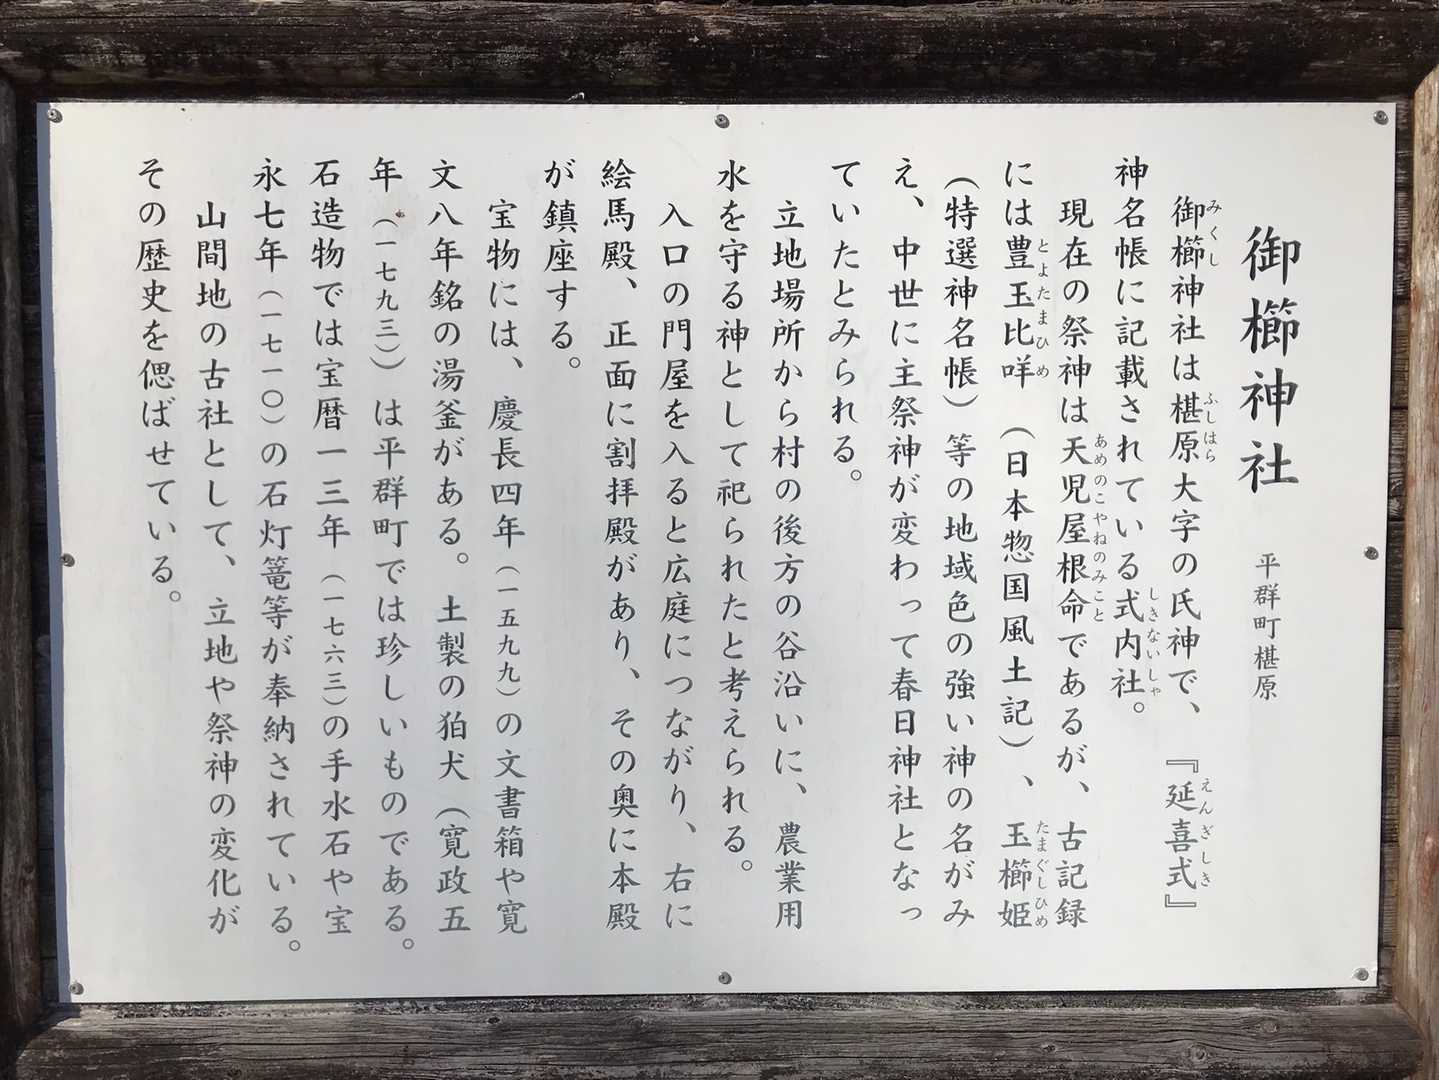 御櫛神社　平群町椹原
御櫛神社は椹原大字の氏神で、『延喜式』
神名帳に記載されている式内社。
現在の祭神は天児屋根命であるが、古記録
には豊玉比咩（日本惣国風土記）、玉櫛姫
（特選神名帳）等の地域色の強い神の名がみ
え、中世に主祭神が変わって春日神社となっ
ていたとみられる。
立地場所から村の後方の谷沿いに、農業用
水を守る神として祀られたと考えられる。
入口の門屋を入ると広庭につながり、右に
絵馬殿、正面に割拝殿があり、その奥に本殿
が鎮座する。
宝物には、慶長四年（一五九九）の文書箱や寛
文八年銘の湯釜がある。土製の狛犬（寛政五
年（一七九三））は平群町では珍しいものである。
石造物では宝暦一三年（一七六三）の手水石や宝
永七年（一七一〇）の石灯篭等が奉納されている。
山間地の古社として、立地や祭神の変化が
その歴史を偲ばせている。